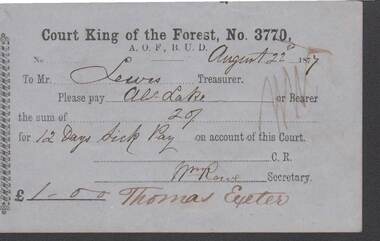 Court King of the Forest, No. 3770,
A. O. F., B. U. D.
No August 22d 1877
To Mr. Lewis Treasurer.
Please pay Alb. Lake or Bearer
the sum of 20/
for 12 Days Sick Pay on account of this Court.
C. R.
Wm Rowe Secretary.
£ 1-0-0 Thomas Exeter